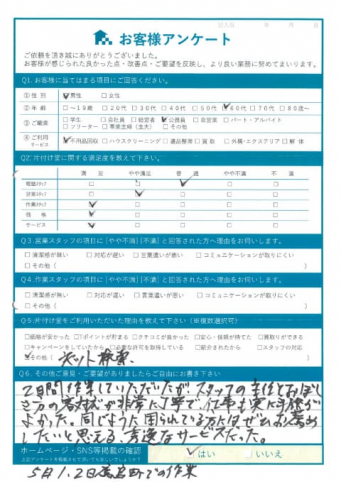 ご記入日 年 月 日
お客様アンケート
ご依頼を頂き誠にありがとうございました。
お客様が感じられた良かった点・改善点・ご要望を反映し、より良い業務に努めてまいります。
Q1. お客様に当てはまる項目にご回答ください。
①性 別 ☑男性 □女性
②年 齢 □～19歳 □20代 □30代 □40代 □50代 ☑60代 □70代 □80歳～
③ご職業 □学生 □会社員 □経営者 ☑公務員 □自営業 □パート・アルバイト
□フリーター □専業主婦（主夫） □その他
④ご利用サービス ☑不用品回収 □ハウスクリーニング □遺品整理 □買取 □外構・エクステリア □解体
Q2. 片付け堂に関する満足度を教えて下さい。
満 足 やや満足 普 通 やや不満 不 満
電話対応
営業対応
作業対応
価 格
サービス
Q3. 営業スタッフの項目に「やや不満」「不満」と回答された方へ理由をお伺いします。
□清潔感が無い □対応が遅い □言葉遣いが悪い □コミュニケーションが取りにくい
□その他（ ）
Q4. 作業スタッフの項目に「やや不満」「不満」と回答された方へ理由をお伺いします。
□清潔感が無い □対応が遅い □言葉遣いが悪い □コミュニケーションが取りにくい
□その他（ ）
Q5. 片付け堂をご利用いただいた理由を教えて下さい（※複数選択可）
□価格が安かった □Tポイントが貯まる □クチコミが良かった □安心・信頼が持てた □買取りができる
□キャンペーンをしていたから □必要な許可を取得している □紹介されたから □スタッフの対応
☑その他（ ネット検索 ）
Q6. その他ご意見・ご要望がありましたらご自由にお書き下さい
2日間作業していただいたが、スタッフの
方の対応が非常に丁寧で、仕事も実に
よかった。同じように困られている方にはぜひお薦め
したいと思える サービスだった。
ホームページ・SNS等掲載の確認
☑はい □いいえ
5月1.2日 での作業